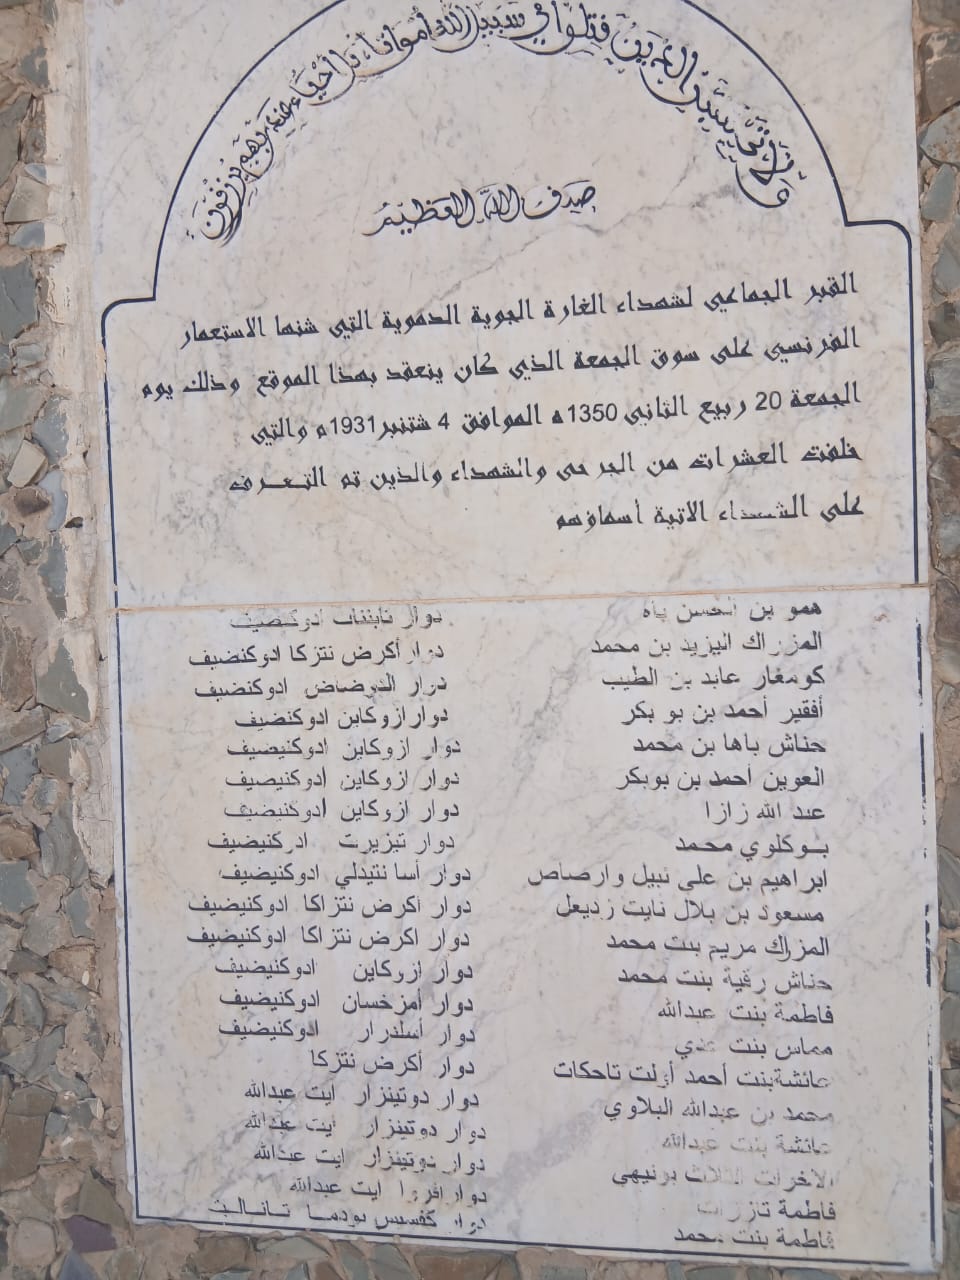 ولا تحسبن الذين قتلوا في سبيل الله أمواتا بل أحياء عند ربهم يرزقون
صدق الله العظيم
القبر الجماعي لشهداء الغارة الجوية الدموية التي شنها الاستعمار
الفرنسي على سوق الجمعة الذي كان ينعقد بهذا الموقع وذلك يوم
الجمعة 20 ربيع الثاني 1350ه الموافق 4 شتنبر 1931م والتي
خلفت العشرات من الجرحى والشهداء والذين تم التعرف
على الشهداء الاتية أسماؤهم
همو بن الحسن باه دوار ادوكنضيف
المزراك اليزيد بن محمد دوار أكرض نتزكا ادوكنضيف
كومغار عابد بن الطيب دوار ادوكنضيف
أفقير أحمد بن بو بكر دوار ازوكاين ادوكنضيف
حناش باها بن محمد دوار ازوكاين ادوكنيضيف
العوين أحمد بن بوبكر دوار ازوكاين ادوكنيضيف
عبد الله زازا دوار ازوكاين ادوكنيضيف
بوكلوي محمد دوار تيزيرت ادوكنيضيف
ابراهيم بن علي نبيل وارصاص دوار أسا نتيذلي ادوكنيضيف
مسعود بن بلال نايت زديعل دوار اكرض نتزاكا ادوكنيضيف
المزراك مريم بنت محمد دوار اكرض نتزاكا ادوكنيضيف
حناش رقية بنت محمد دوار ازوكاين ادوكنيضيف
فاطمة بنت عبدالله دوار أمزخسان ادوكنيضيف
مماس بنت دوار أسلندرار ادوكنيضيف
عائشة بنت أحمد أزلت تاحكات دوار أكرض نتزكا
محمد بن عبدالله البلاوي دوار دوتينزار ايت عبدالله
عائشة بنت عبدالله دوار دوتينزار ايت عبدالله
الاخوات الثلاث بونيهي دوار دوتينزار ايت عبدالله
فاطمة دوار افروا ايت عبدالله
فاطمة بنت محمد دوار بودما تانالت